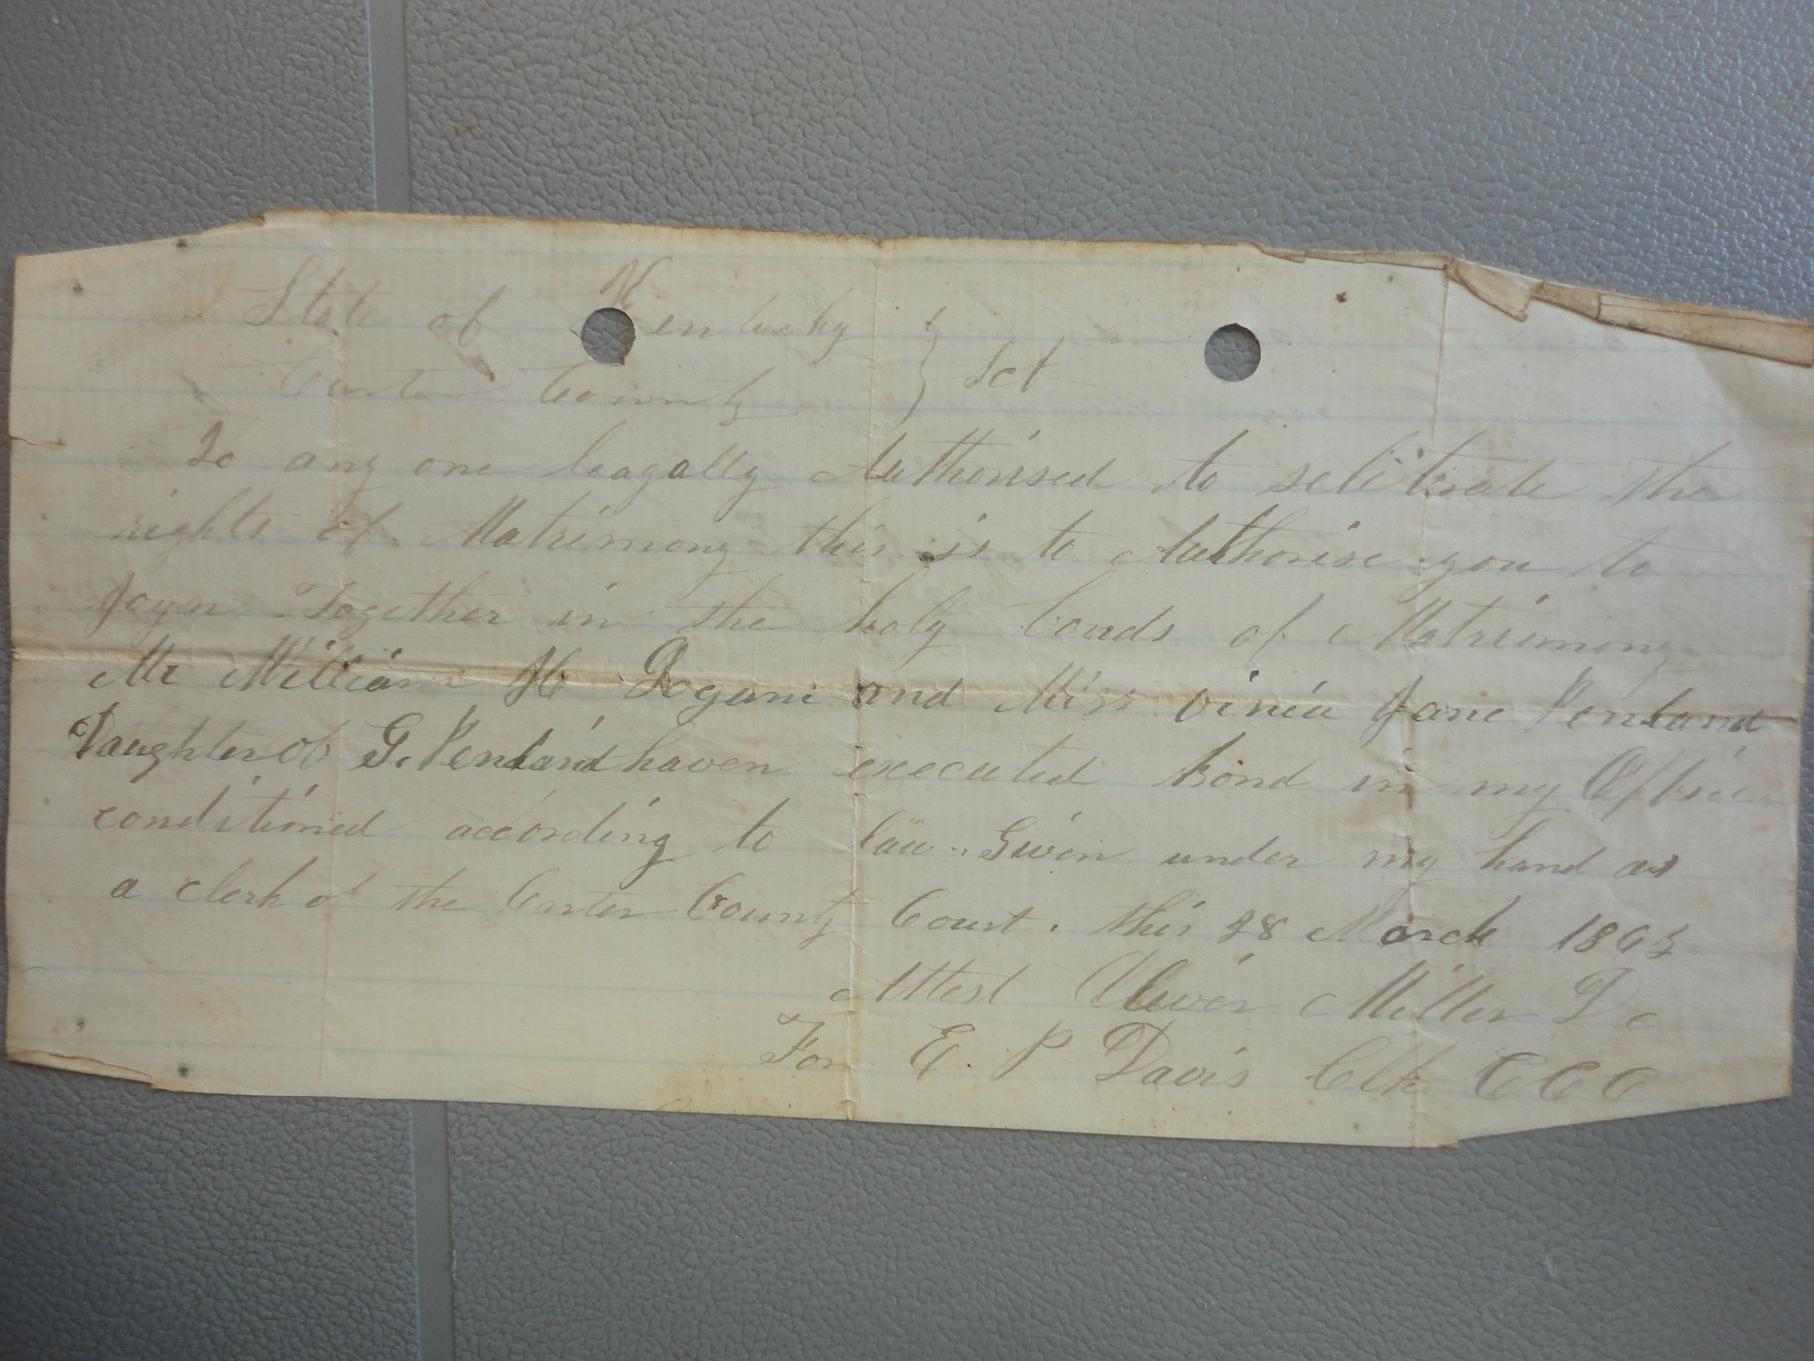 State of Kentucky }
Carter County } Sct
To any one leagally Authorised to selibrate the
rights of Matrimony this is to Authorise you to
Joyn Together in the holy bonds of Matrimony
Mr William H Logani and Miss vinia Jane Penland
Daughter of G. Penland haven executed bond in my Office
conditioned according to law. Given under my hand as
a clerk of the Carter County Court. this 28 March 1863
Attest Oliver Miller Dc
For E. P Davis Clk CCC